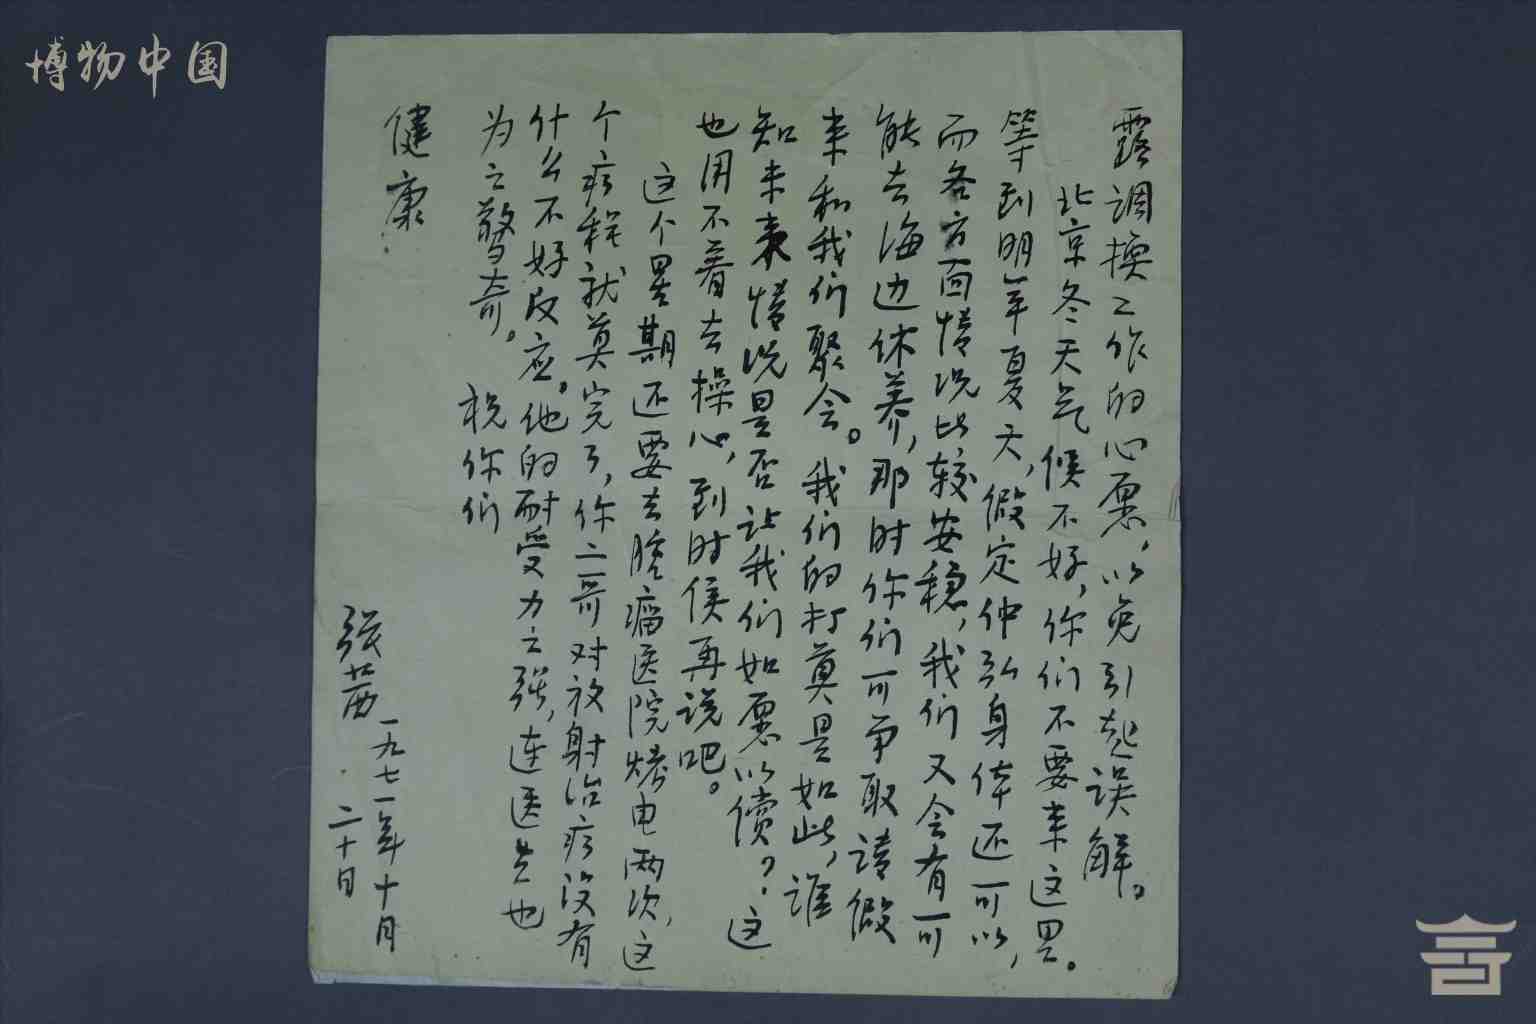 博物中国
露调换工作的心愿，以免引起误解。
北京冬天气候不好，你们不要来这里。
等到明年夏天，假定仲弘身体还可以，
而各方面情况比较安稳，我们又会有可
能去海边休养，那时你们可争取请假
来和我们聚会。我们的打算是如此，谁
知未来情况是否让我们如愿以偿？这
也用不着去操心，到时侯再说吧。
这个星期还要去肿瘤医院烤电两次，这
个疗程就算完了，你二哥对放射治疗没有
什么不好反应。他的耐受力之强，连医生也
为之惊奇。
祝你们
健康
张茜
一九七一年十月
二十日